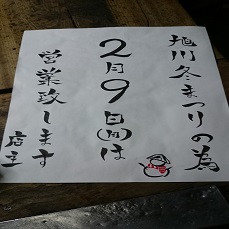 旭川冬まつりの為
2月9日(月)は
営業致します
店主